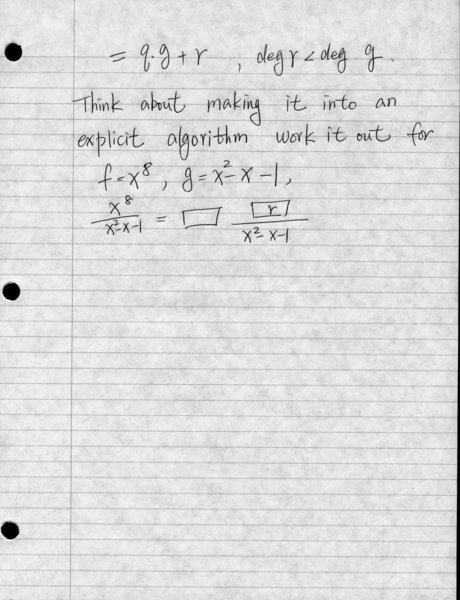 = q.g + r , deg r < deg g.
Think about making it into an
explicit algorithm work it out for
f = x⁸ , g = x² - x - 1,
x⁸ / x²-x-1 = □ r / x²-x-1